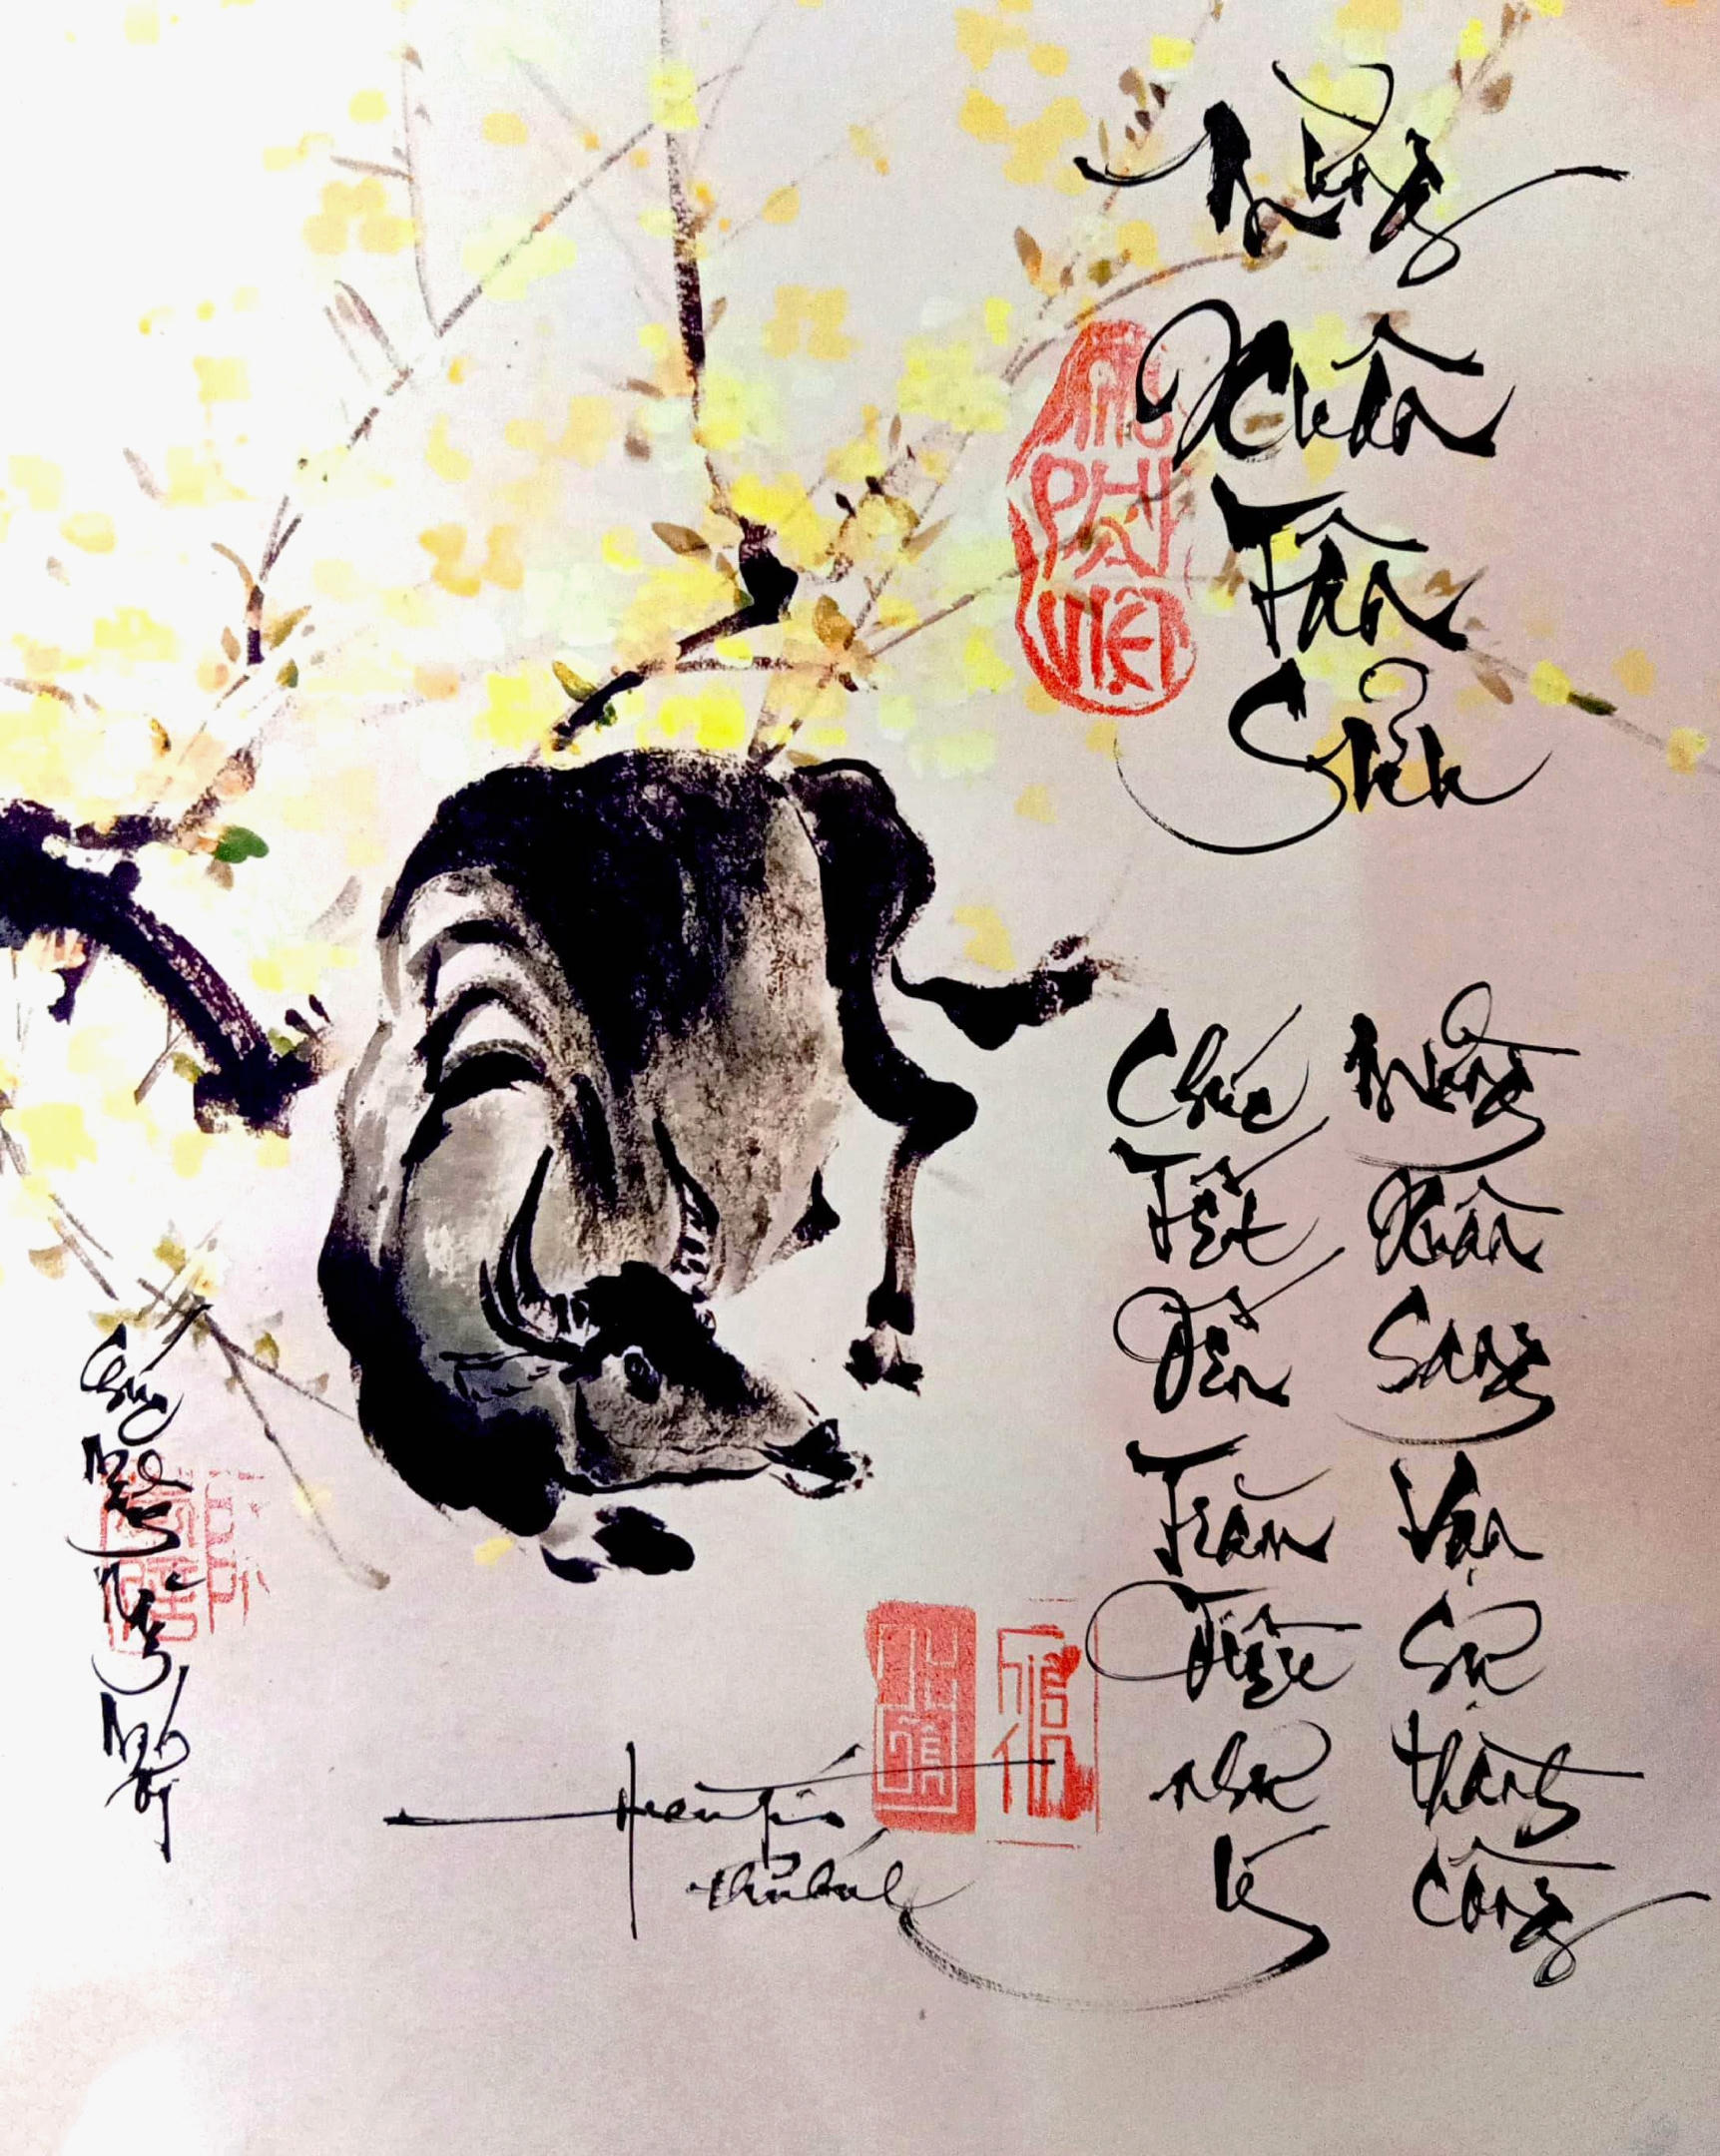 Mừng Xuân Tân Sửu
THƯ PHÁP VIỆT
Chúc Tết Đến Trăm Điều như Ý
Mừng Xuân Sang Vạn Sự thành Công
thủ bút